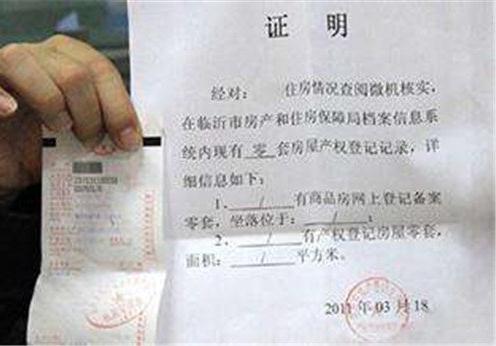 证 明
经对: 住房情况查阅微机核实,
在临沂市房产和住房保障局档案信息系
统内现有 零 套房屋产权登记记录,详
细信息如下:
1、 / 有商品房网上登记备案
零套,坐落位于: / ;
2、 / 有产权登记房屋零套,
面积: / 平方米。
2011 年 03 月 18